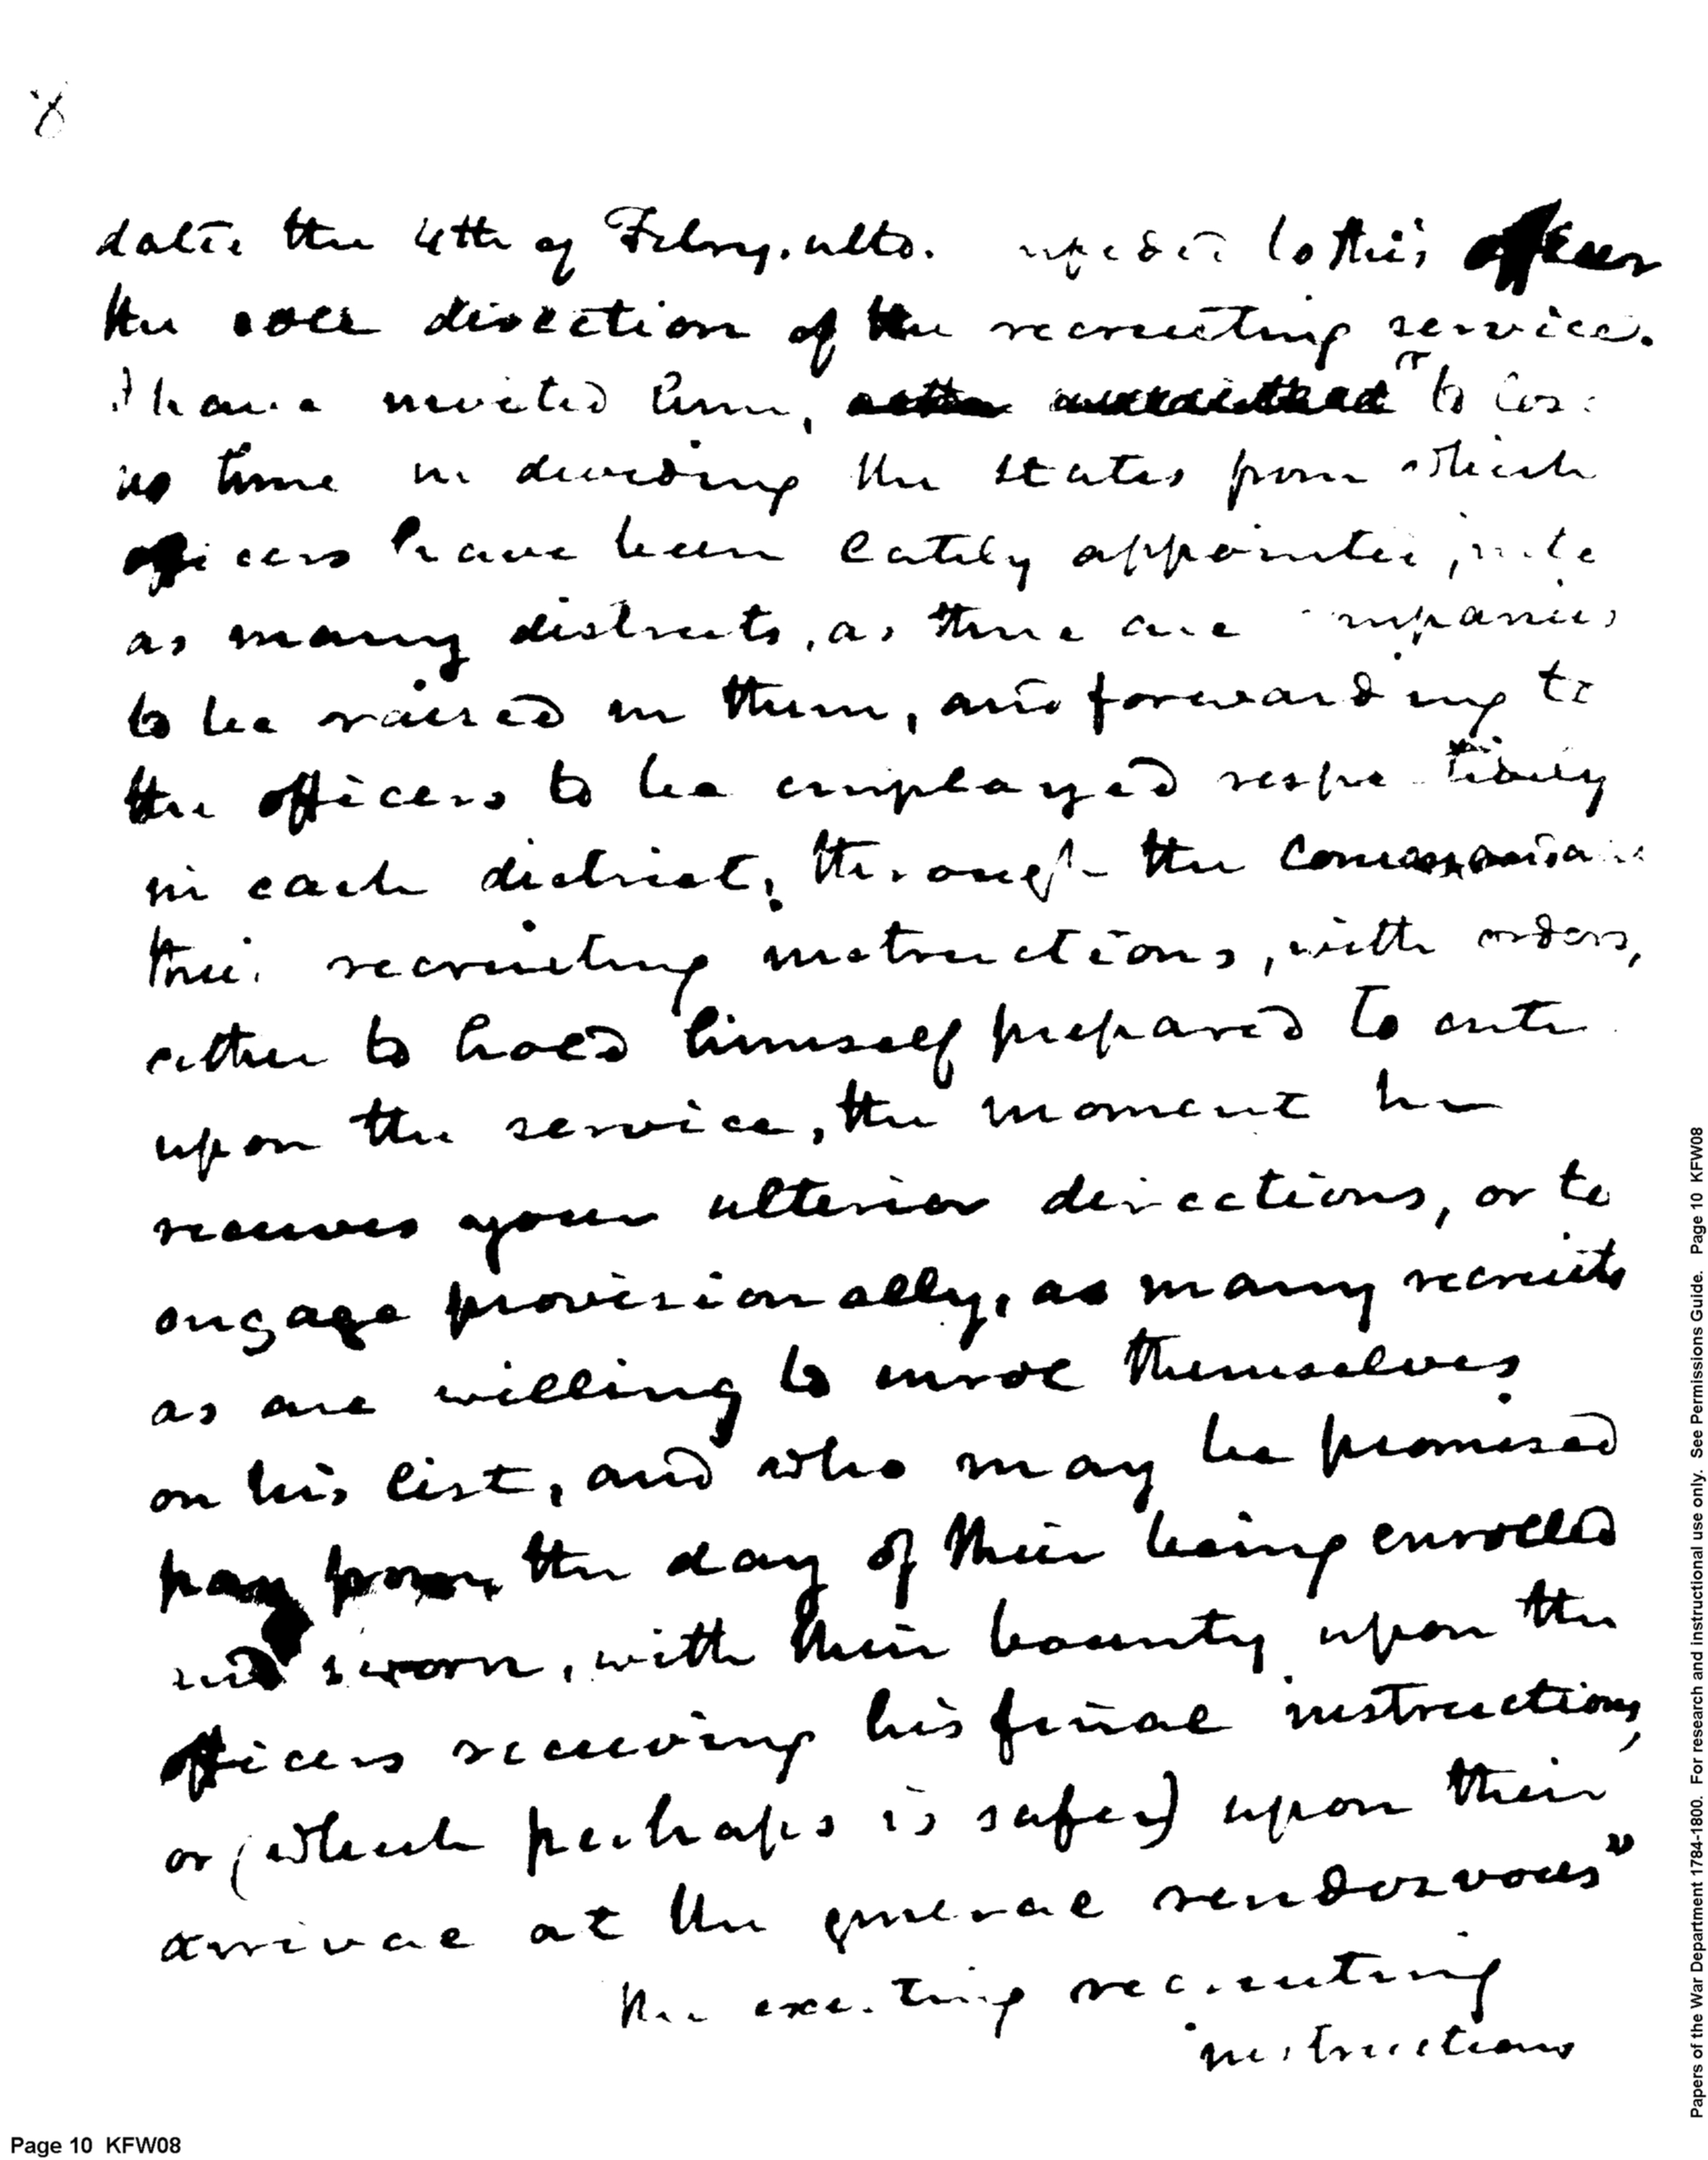 8
dated the 4th of Febry. ulto. to this officer
the sole direction of the recruiting service.
I have invited him, "to lose
no time in dividing the states from which
officers have been lately appointed, into
as many districts, as there are companies
to be raised in them, and forwarding to
the officers to be employed respectively
in each district, through the
their recruiting instructions, with orders,
either to hold himself prepared to enter
upon the service, the moment he
receives your ulterior directions, or to
engage provisionally, as many recruits
as are willing to inrol themselves
on his list, and who may be promised
pay from the day of their being enrolled
and sworn, with their bounty upon the
officers receiving his final instructions,
or (which perhaps is safer) upon their
arrival at the general rendezvous"
The existing recruiting
instructions
Page 10 KFW08
Papers of the War Department 1784-1800. For research and instructional use only. See Permissions Guide. Page 10 KFW08